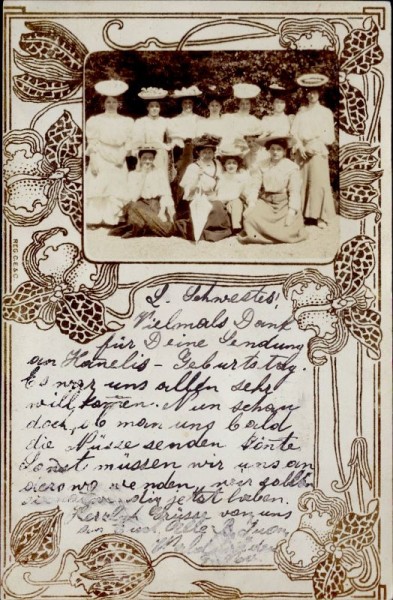 L. Schwester!
Vielmals Dank
für Deine Sendung
an Hanelis - Geburtstag.
Es war uns allen sehr
willkomen. Nun schau
doch, ob man uns bald
die Nüsse senden könte
Sonst müssen wir uns an
wo wenden,
wir jetzt haben.
Herzlich Grüsse von uns
an Euch
REG. C.E.&C.